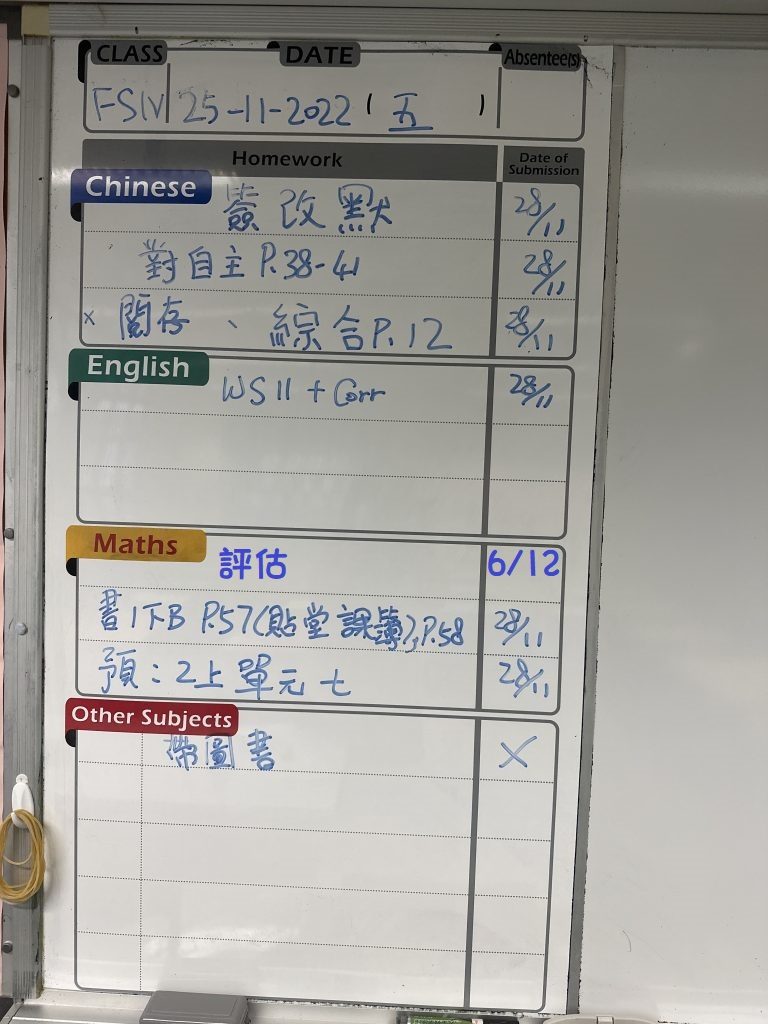 CLASS DATE Absentee(s)
FSIV 25-11-2022 (五)
Homework Date of Submission
Chinese
簽改默 28/11
對自主 P.38-41 28/11
× 閱存、綜合P.12 28/11
English
WS11 + Corr 28/11
Maths
評估 6/12
書1下B P.57(貼堂課簿), P.58 28/11
預:2上單元七 28/11
Other Subjects
帶圖書 ×